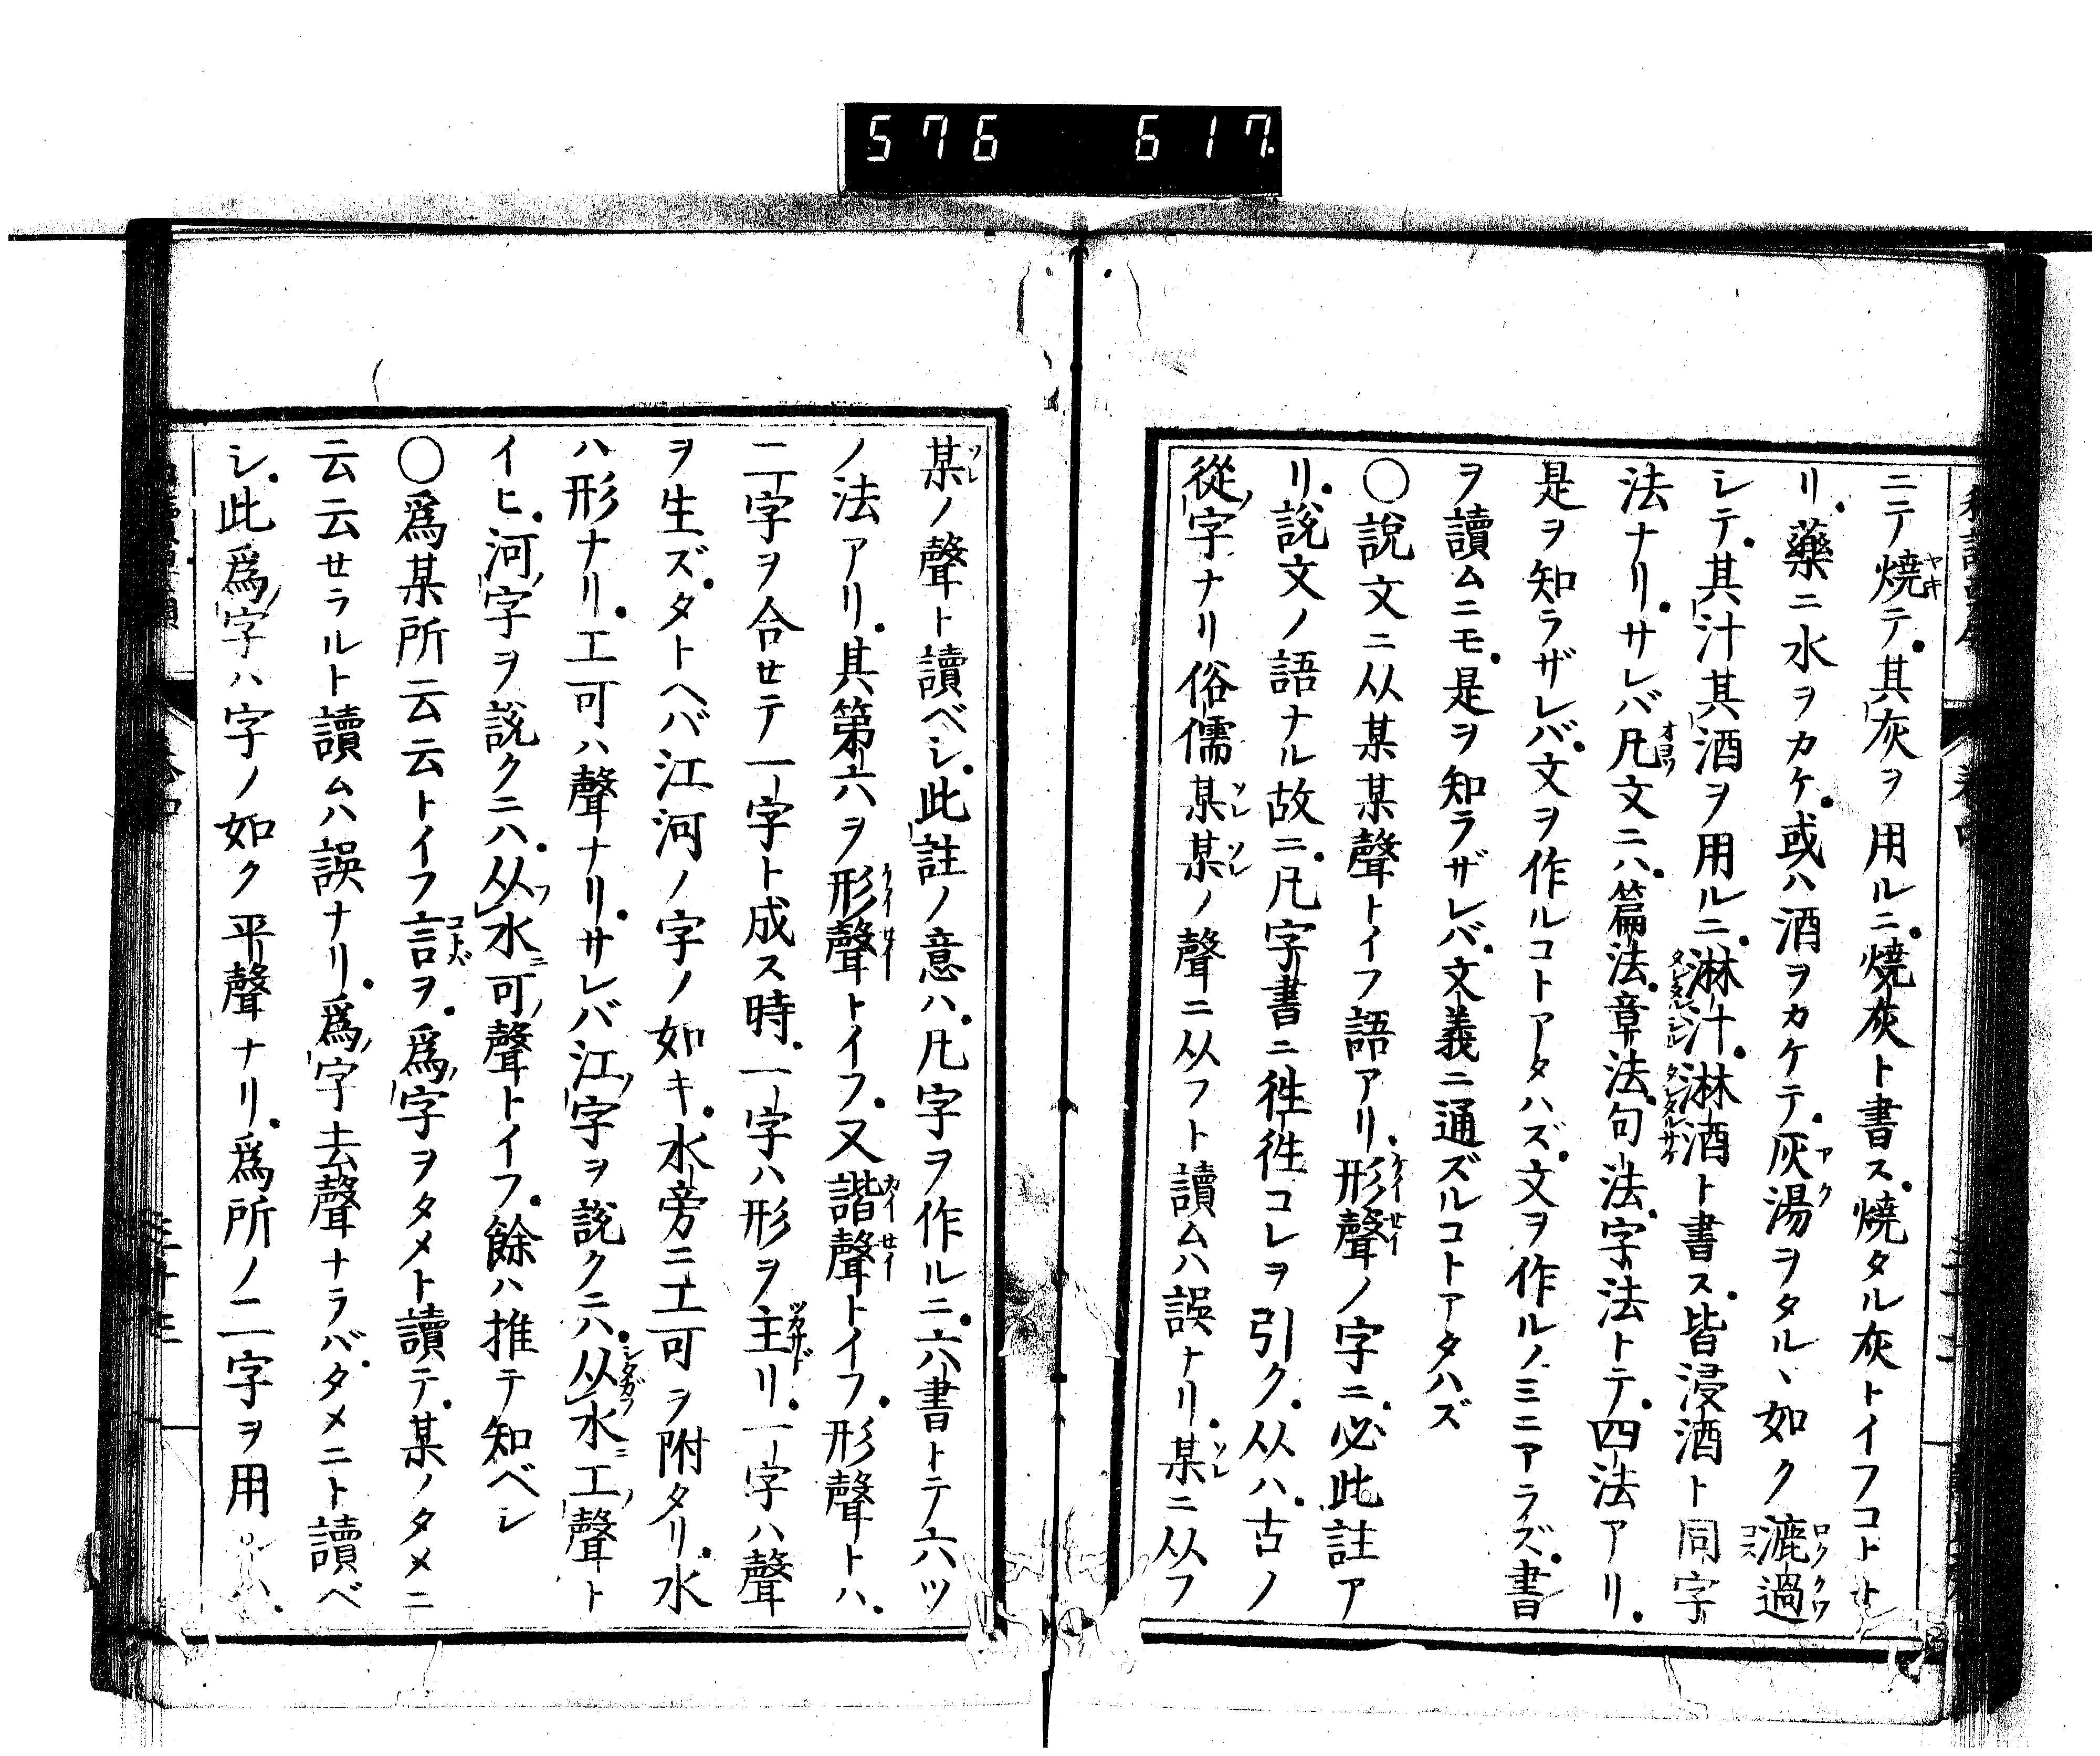 576 617
ニテ焼テ其灰ヲ用ルニ焼灰ト書ス焼タル灰トイフコト
リ藥ニ水ヲカケ或ハ酒ヲカケテ灰湯ヲタルヽ如ク漉過
シテ其汁其酒ヲ用ルニ淋汁淋酒ト書ス皆浸酒ト同字
法ナリサレバ凡文ニハ篇法章法句法字法トテ四法アリ
是ヲ知ラザレバ文ヲ作ルコトアタハズ文ヲ作ルノミニアラズ書
ヲ讀ムニモ是ヲ知ラザレバ文義ニ通ズルコトアタハズ
〇說文ニ从某某聲トイフ語アリ形聲ノ字ニ必此註ア
リ說文ノ語ナル故ニ凡字書ニ徃徃コレヲ引ク从ハ古ノ
從字ナリ俗儒某某ノ聲ニ从フト讀ムハ誤ナリ某ニ从フ
某ノ聲ト讀ベシ此註ノ意ハ凡字ヲ作ルニ六書トテ六ツ
ノ法アリ其第六ヲ形聲トイフ又諧聲トイフ形聲トハ
二字ヲ合セテ一字ト成ス時一字ハ形ヲ主リ一字ハ聲
ヲ生ズタトヘバ江河ノ字ノ如キ水旁ニ工可ヲ附タリ水
ハ形ナリ工可ハ聲ナリサレバ江字ヲ說クニハ从水工聲ト
イヒ河字ヲ說クニハ从水可聲トイフ餘ハ推テ知ベシ
〇爲某所云云トイフ言ヲ爲字ヲタメト讀テ某ノタメニ
云云セラルト讀ムハ誤ナリ爲字去聲ナラバタメニト讀ベ
シ此爲字ハ字ノ如ク平聲ナリ爲所ノ二字ヲ用